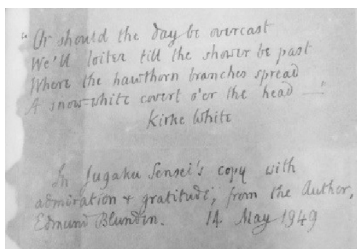 "Or should the day be overcast
We'll loiter till the shower be past
Where the hawthorn branches spread
A snow-white covert o'er the head —."
Kirke White
In Jugaku Sensei's copy with
admiration & gratitude, from the Author,
Edmund Blunden. 14 May 1949